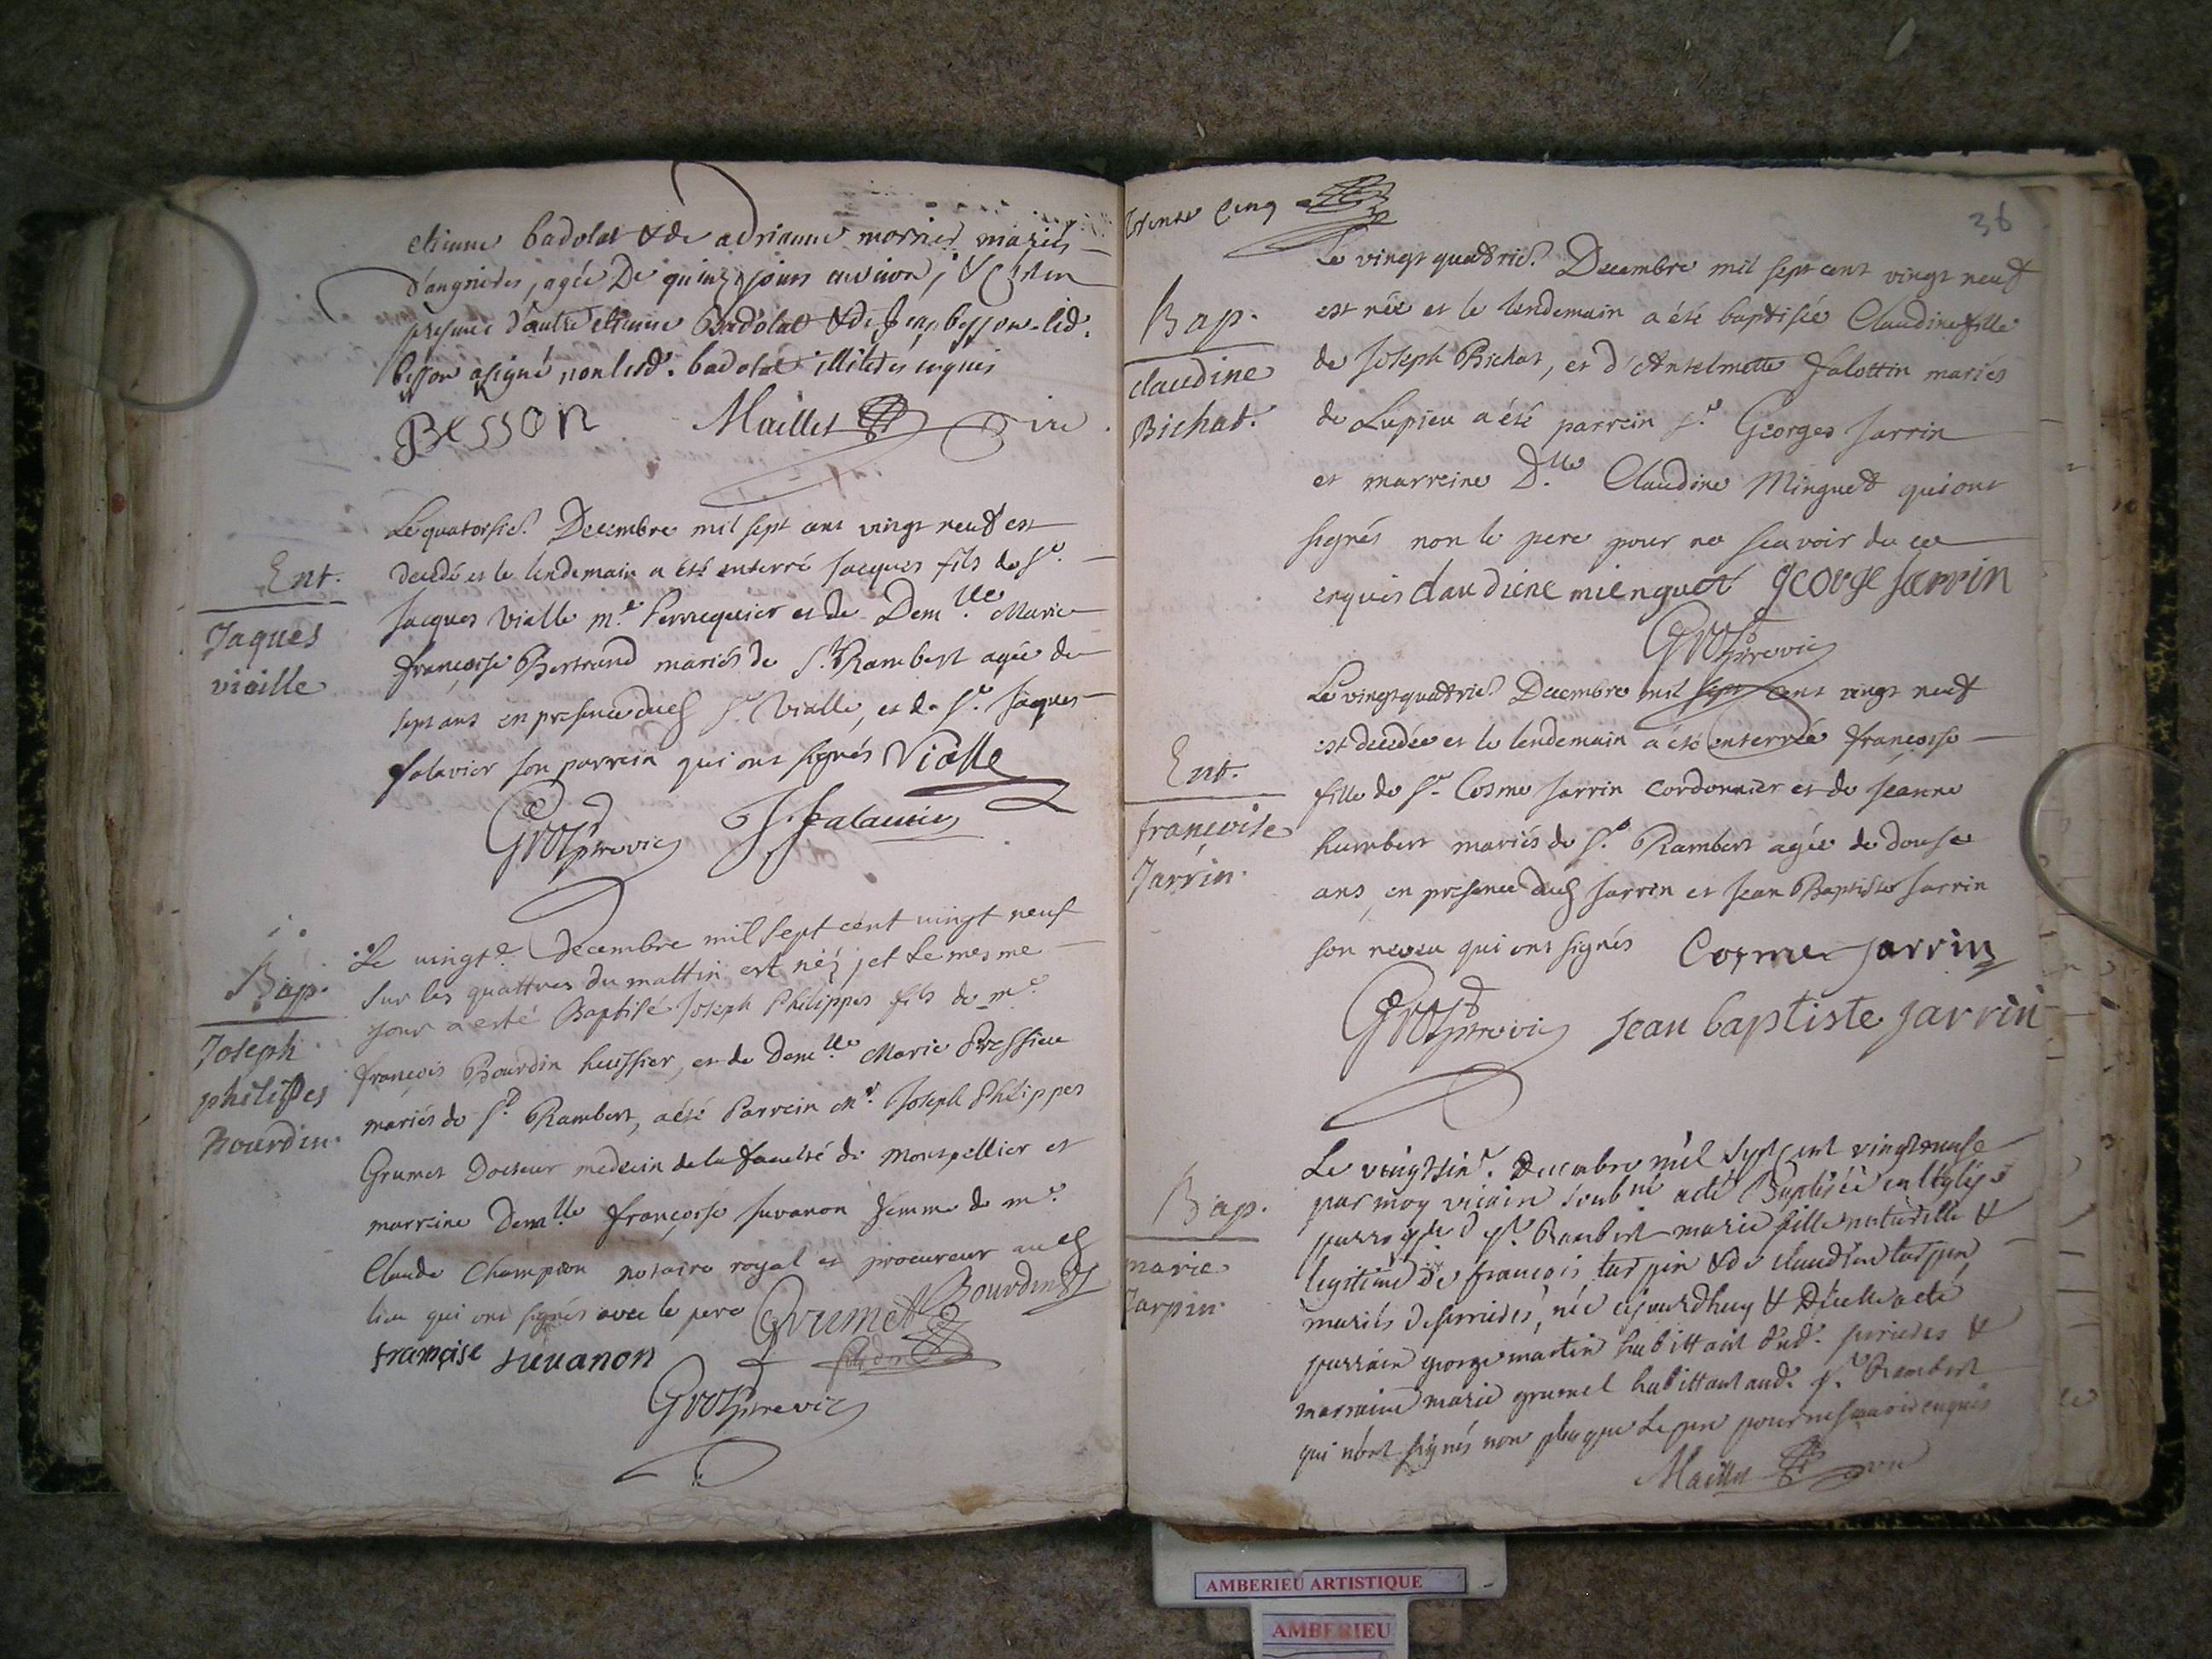 etienne badolat & de adrianne mornier mariés
d'angrieres, agée De quinze jours environ, &
presence d'autre etienne Badolat & de besson led.
besson a signé non led. badolat illiteres enquis
BESSON Maillet vic
Ent.
Jaques
viaille
Le quatorsie. Decembre mil sept cent vingt neuf est
decedé et le lendemain a été enterré Jacques fils de Sr.
Jacques Vialle me. Perruquier et de Demlle. Marie
françoise Bertrand mariés de St. Rambert agée de
sept ans en presence dud. Sr. Vialle, et de Sr. Jaques
falavier son parrein qui ont signés Vialle
Gros previc J. falavier
Bap.
Joseph
philippes
Bourdin.
Le vingte. decembre mil sept cent vingt neuf
sur les quattres du mattin est né, et le mesme
jour a esté Baptisé Joseph Philippes fils de me.
françois Bourdin huissier, et de Demlle Marie Pressieu
mariés de St. Rambert, a été Parrein Mr. Joseph Philippes
Grumet Docteur medecin de la faculté de Montpellier et
marreine Demlle françoise Suvanon femme de me.
Claude Champion notaire royal et procureur aud.
lieu qui ont signés avec le pere Grumet Bourdin
françoise suvanon
Gros previc
trente Cinq
36
Bap.
claudine
Bichat.
Le vingt quatrie. Decembre mil sept cent vingt neuf
est née et le lendemain a été baptisée Claudine fille
de Joseph Bichat, et d'Antelmette Jalottin mariés
de Lupieu a été parrein Sr. Georges Jarrin
et marreine Dlle. Claudine Minguet qui ont
signés non le pere pour ne scavoir de ce
enquis claudiene mienguet george Jarrin
Gros previc
Ent.
françoise
Jarrin.
Le vingt quatrie. Decembre mil sept cent vingt neuf
est decedée et le lendemain a été enterrée françoise
fille de Sr. Cosme Jarrin cordonnier et de Jeanne
humbert mariés de St. Rambert agée de douse
ans, en presence dud. Jarrin et Jean Baptiste Jarrin
son neveu qui ont signés Cosme Jarrin
Gros previc jean baptiste jarrin
Bap.
marie
Tarpin.
Le vingt sixe. Decembre mil sept cent vingt neufe
par moy vicaire soubné a eté Baptisée en l'eglise
parroylle d St. Rambert marie fille naturelle &
legitime de françois tarpin & de claudine tarpin
mariés de serrieres, née cejourdhuy & D'icelle a eté
parrain george martin habittant dud. serrieres &
marraine marie grumel habittant aud. St. Rambert
qui n'ont signés non plus que le pere pour ne scavoir enquis
Maillet vic
AMBERIEU ARTISTIQUE
AMBERIEU